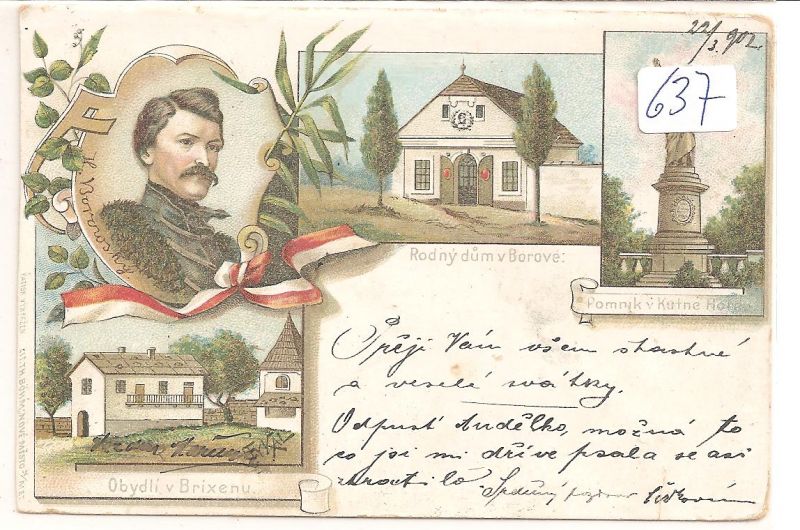 22/3 902.
637
K. Havlíček
Rodný dům v Borové:
Pomník v Kutné Hoře
Přeji Vám všem šťastné
a veselé svátky.
Odpusť Andělko, možná to
co jsi mi dříve psala se asi
ztratilo
Srdečný pozdrav
Obydlí v Brixenu.